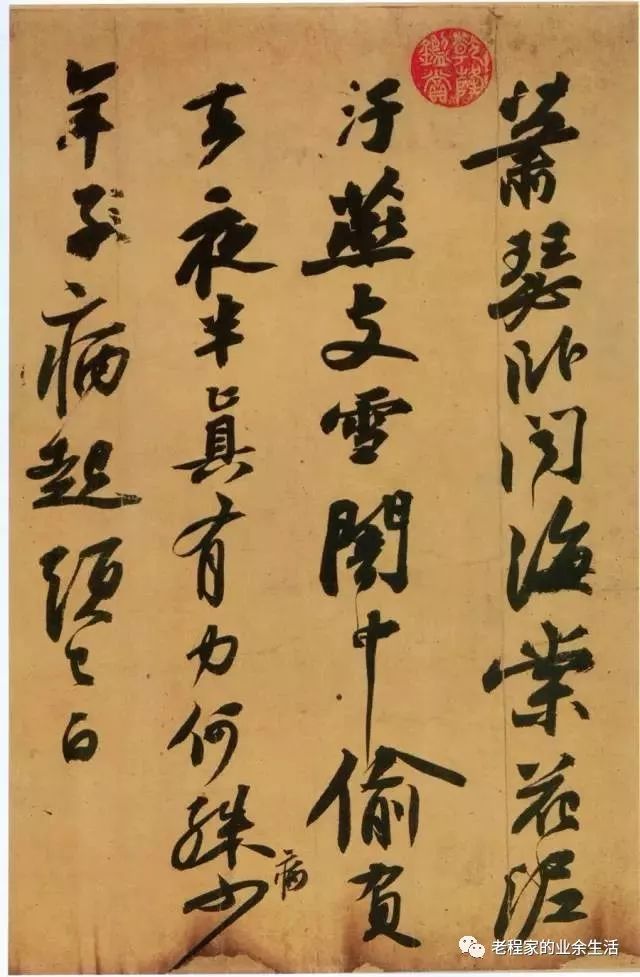 乾隆鑑賞
蕭瑟臥聞海棠花泥
汙燕支雪闇中偷負
去夜半眞有力何殊病少
年子病起頭已白
老程家的业余生活